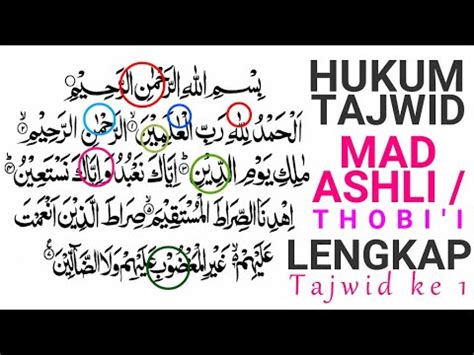 بِسْمِ اللّٰهِ الرَّحْمٰنِ الرَّحِيْمِ
اَلْحَمْدُ لِلّٰهِ رَبِّ الْعٰلَمِيْنَ الرَّحْمٰنِ الرَّحِيْمِ
مٰلِكِ يَوْمِ الدِّيْنِ اِيَّاكَ نَعْبُدُ وَاِيَّاكَ نَسْتَعِيْنُ
اِهْدِنَا الصِّرَاطَ الْمُسْتَقِيْمَ صِرَاطَ الَّذِيْنَ اَنْعَمْتَ
عَلَيْهِمْ غَيْرِ الْمَغْضُوْبِ عَلَيْهِمْ وَلَا الضَّآلِّيْنَ
HUKUM
TAJWID
MAD
ASHLI /
THOBI'I
LENGKAP
Tajwid ke 1